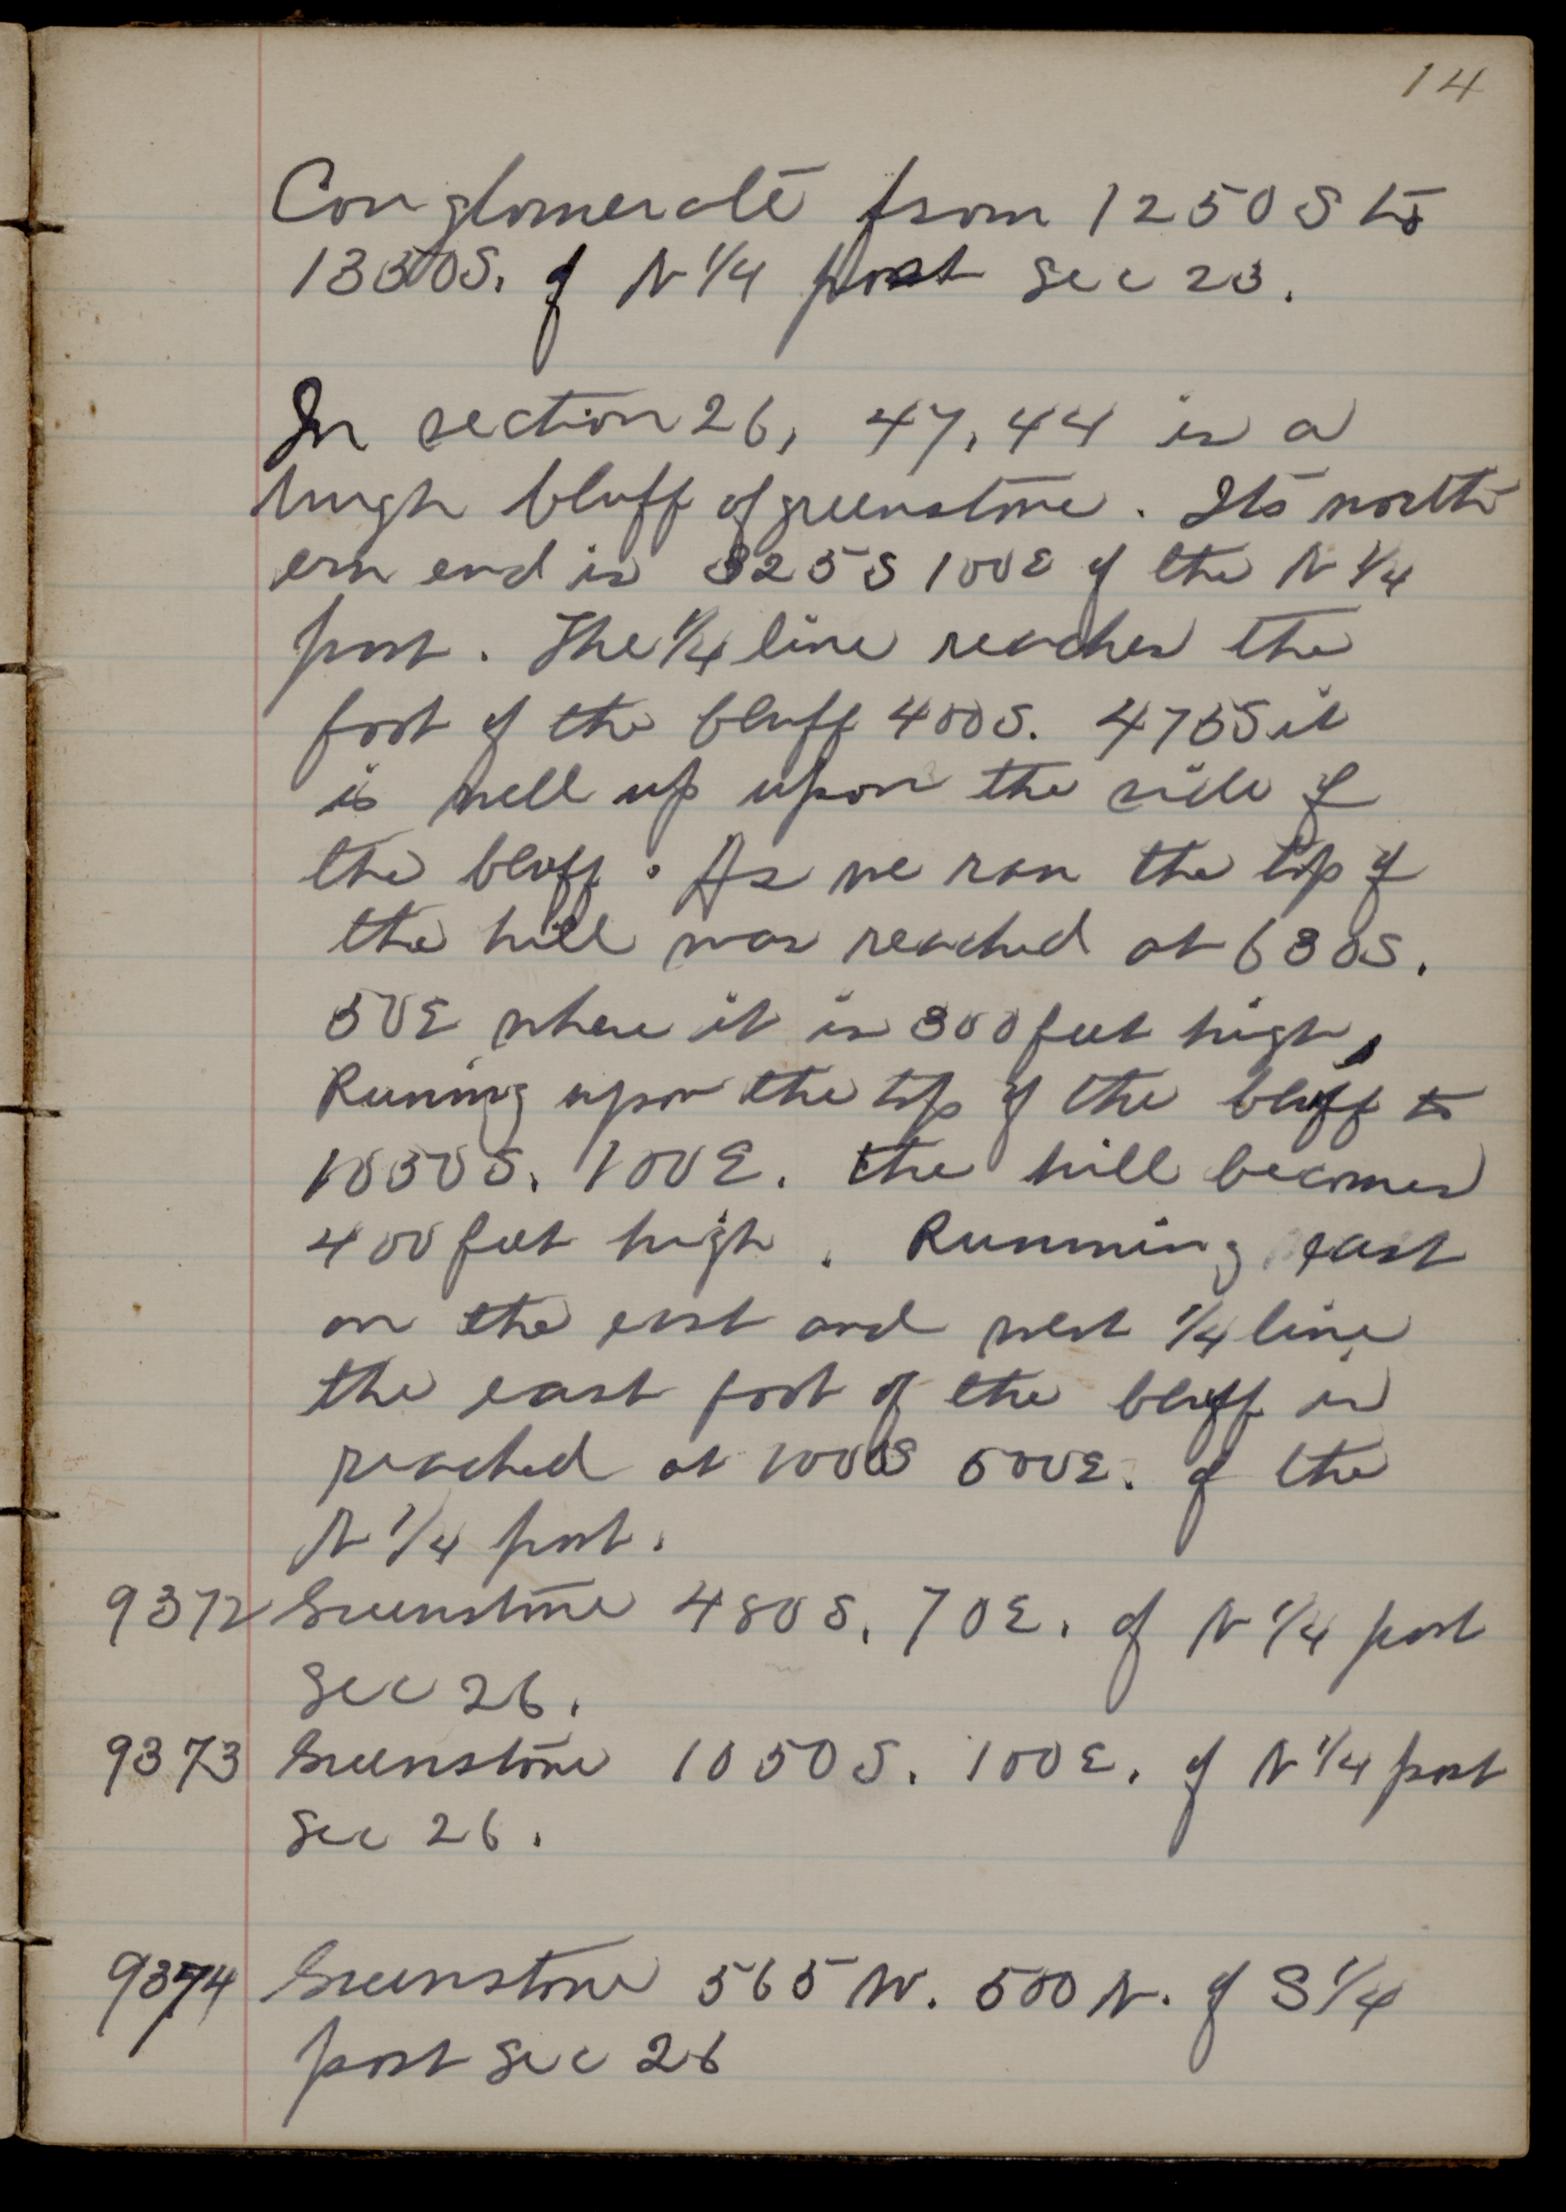 14
Conglomerate from 1250 S to
1330 S. of N 1/4 post Sec 23.
In section 26, 47, 44 is a
high bluff of greenstone. Its north
ern end is 325 S 100 E of the N 1/4
post. The 1/4 line reaches the
foot of the bluff 400 S. 475 S it
is well up upon the side of
the bluff. As we ran the top of
the hill was reached at 630 S.
50 E where it is 300 feet high,
Runing upon the top of the bluff to
1050 S. 100 E. the hill becomes
400 feet high. Running east
on the east and west 1/4 line
the east foot of the bluff is
reached at 1000 S 500 E. of the
N 1/4 post.
9372 Greenstone 480 S. 70 E. of N 1/4 post
Sec 26.
9373 Greenstone 1050 S. 100 E. of N 1/4 post
Sec 26.
9374 Greenstone 565 W. 500 N. of S 1/4
post Sec 26